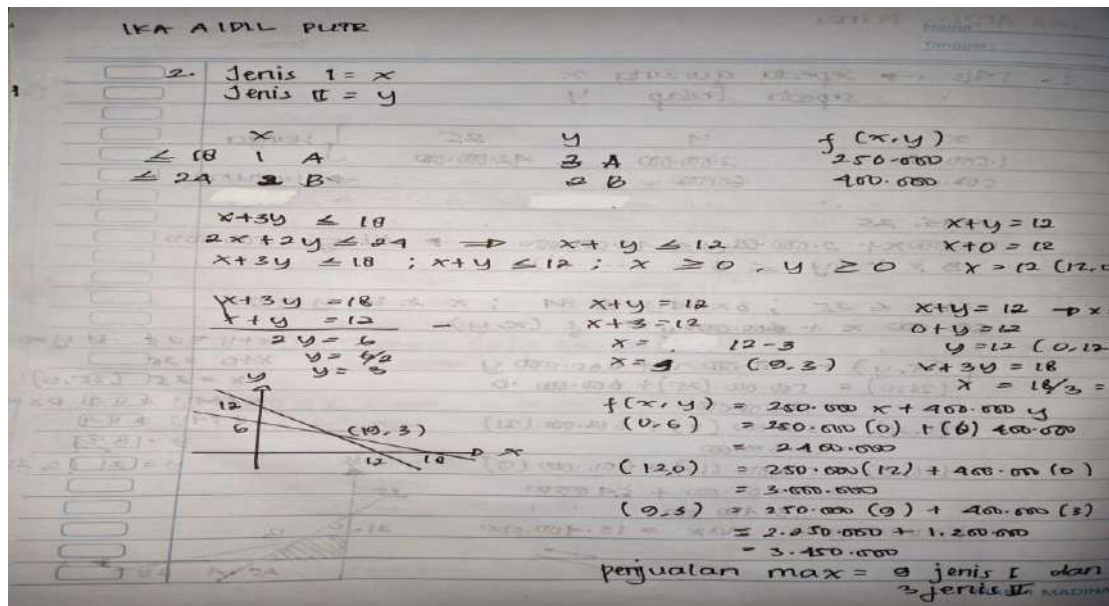 IKA AIDIL PUTR
2. Jenis I = x
Jenis II = y
x y f (x,y)
≤ 18 1 A 3 A 250.000
≤ 24 2 B 2 B 400.000
x+3y ≤ 18 x+y = 12
2x+2y ≤ 24 → x+y ≤ 12 x+0 = 12
x+3y ≤ 18 ; x+y ≤ 12 ; x ≥ 0, y ≥ 0 x = 12 (12,0
x+3y = 18 x+y = 12 x+y = 12 → x
x+y = 12 - x+3 = 12 0+y = 12
2y = 6 x = 12-3 y = 12 (0,12
y = 6/2 x = 9 (9,3) x+3y = 18
y = 3 x = 18/3 =
y f(x,y) = 250.000 x + 400.000 y
12 (0,6) = 250.000 (0) + (6) 400.000
6 (9,3) = 2400.000
12 18 x (12,0) = 250.000 (12) + 400.000 (0)
= 3.000.000
(9,3) = 250.000 (9) + 400.000 (3)
= 2.250.000 + 1.200.000
= 3.450.000
penjualan max = 9 jenis I dan
3 jenis II